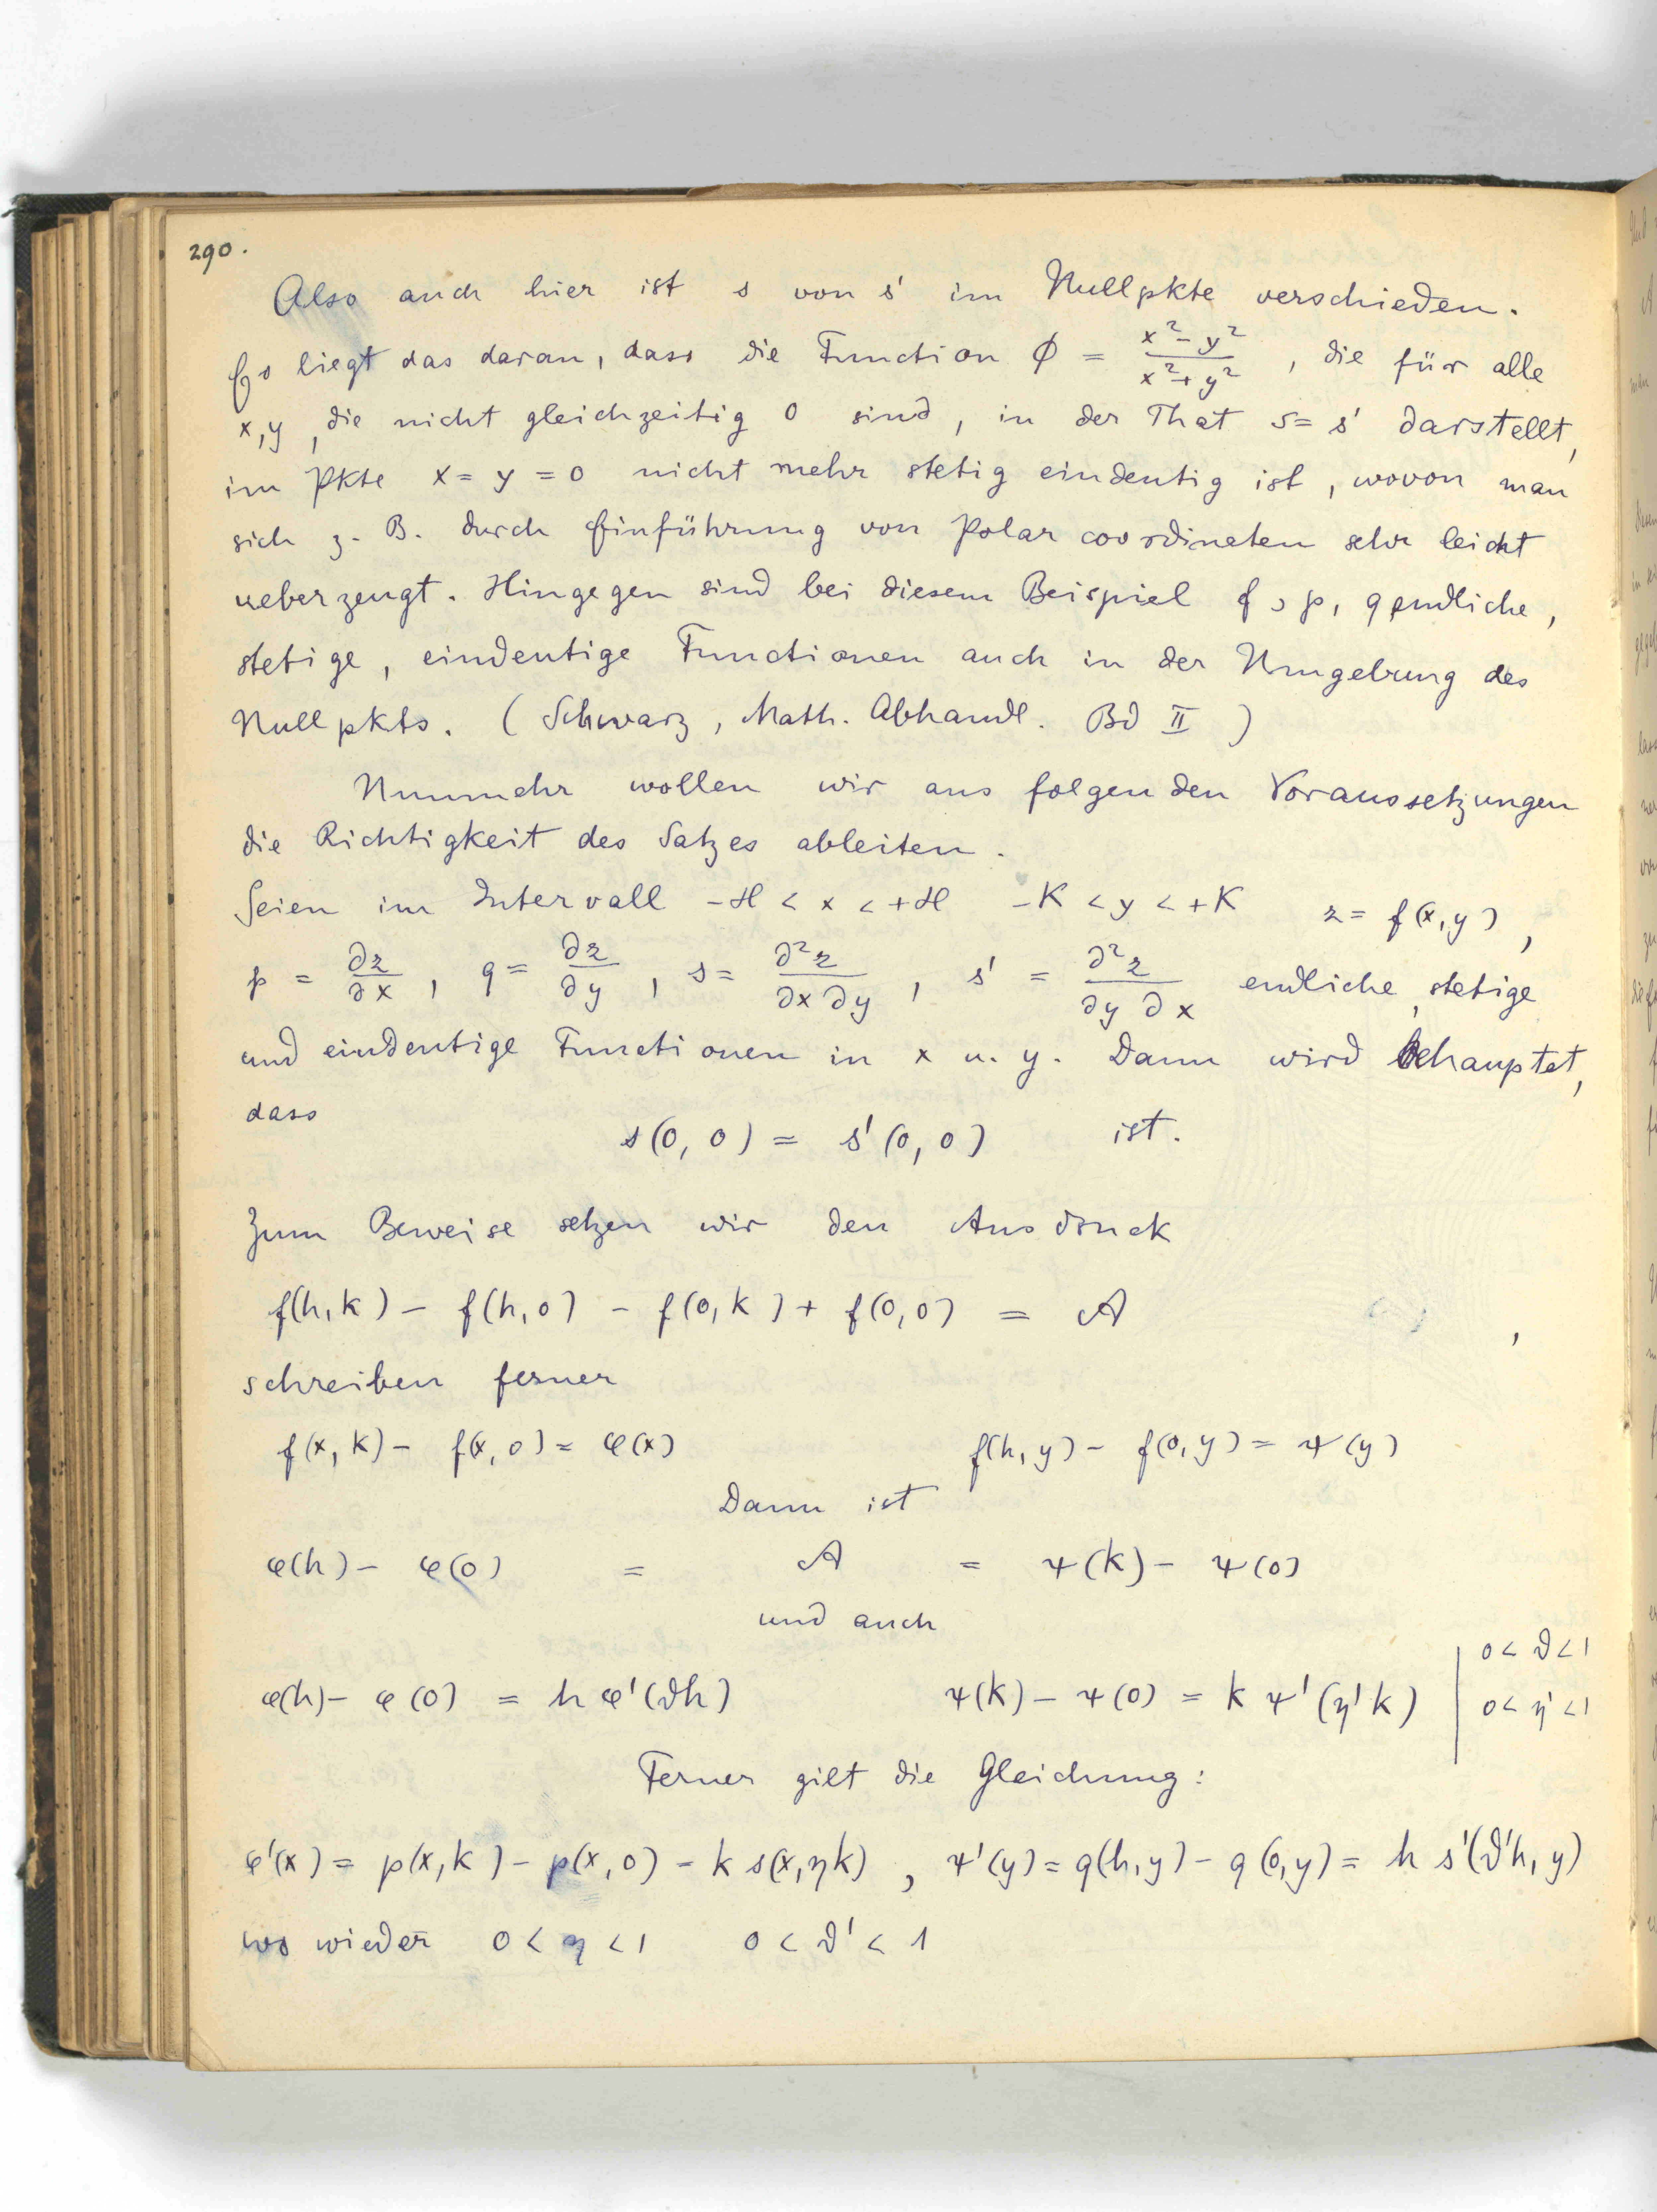 290.
Also auch hier ist s von s' im Nullpkte verschieden.
Es liegt das daran, dass die Function ϕ = (x² - y²)/(x² + y²), die für alle
x, y, die nicht gleichzeitig 0 sind, in der That s = s' darstellt,
im Pkte x = y = 0 nicht mehr stetig eindeutig ist, wovon man
sich z. B. durch Einführung von Polarcoordineten sehr leicht
ueberzeugt. Hingegen sind bei diesem Beispiel f, p, q endliche,
stetige, eindeutige Functionen auch in der Umgebung des
Nullpkts. (Schwarz, Math. Abhandl. Bd II)
Nunmehr wollen wir aus folgenden Voraussetzungen
die Richtigkeit des Satzes ableiten.
Seien im Intervall -H < x < +H -K < y < +K z = f(x, y),
p = ∂z/∂x, q = ∂z/∂y, s = ∂²z/∂x∂y, s' = ∂²z/∂y∂x endliche, stetige
und eindeutige Functionen in x u. y. Dann wird behauptet,
dass
s(0, 0) = s'(0, 0) ist.
Zum Beweise setzen wir den Ausdruck
f(h, k) - f(h, 0) - f(0, k) + f(0, 0) = A ,
schreiben ferner
f(x, k) - f(x, 0) = φ(x) f(h, y) - f(0, y) = ψ(y)
Dann ist
φ(h) - φ(0) = A = ψ(k) - ψ(0)
und auch
φ(h) - φ(0) = h φ'(ϑh) ψ(k) - ψ(0) = k ψ'(η'k) | 0 < ϑ < 1
0 < η' < 1
Ferner gilt die Gleichung:
φ'(x) = p(x, k) - p(x, 0) - k s(x, ηk) , ψ'(y) = q(h, y) - q(0, y) = h s'(ϑ'h, y)
wo wieder 0 < η < 1 0 < ϑ' < 1